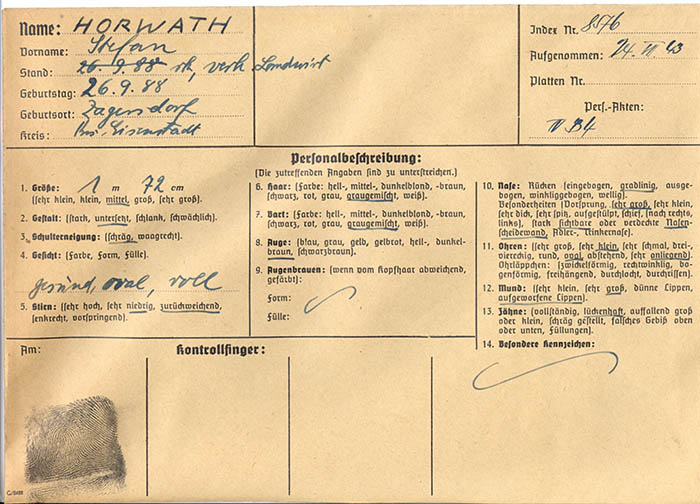 Name: HORWATH
Vorname: Stefan
Stand: 26.9.88 rk, verh. Landwirt
Geburtstag: 26.9.88
Geburtsort: Zagersdorf
Kreis: Bez. Eisenstadt
Index Nr. 8576
Aufgenommen:
Platten Nr.
Pers.-Akten:
IV B4
Personalbeschreibung:
(Die zutreffenden Angaben sind zu unterstreichen.)
1. Größe: 1 m 72 cm
(sehr klein, klein, mittel, groß, sehr groß).
2. Gestalt: (stark, untersetzt, schlank, schwächlich).
3. Schulterneigung: (schräg, waagrecht).
4. Gesicht: (Farbe, Form, Fülle).
gesund, oval, voll
5. Stirn: (sehr hoch, sehr niedrig, zurückweichend,
senkrecht, vorspringend).
6. Haar: (Farbe: hell-, mittel-, dunkelblond, -braun,
schwarz, rot, grau, graugemischt, weiß).
7. Bart: (Farbe: hell-, mittel-, dunkelblond, -braun,
schwarz, rot, grau, graugemischt, weiß).
8. Auge: (blau, grau, gelb, gelbrot, hell-, dunkel-
braun, schwarzbraun).
9. Augenbrauen: (wenn vom Kopfhaar abweichend,
gefärbt):
Form:
Fülle:
10. Nase: Rücken (eingebogen, gradlinig, ausge-
bogen, winkliggebogen, wellig).
Besonderheiten (Vorsprung, sehr groß, sehr klein,
sehr dick, sehr spitz, aufgestülpt, schief, (nach rechts,
links), stark sichtbare oder verdeckte Nasen-
scheidewand, Adler-, Trinkernase).
11. Ohren: (sehr groß, sehr klein, sehr schmal, drei-,
viereckig, rund, oval, abstehend, sehr anliegend).
Ohrläppchen: (zwickelförmig, rechtwinklig, bo-
genförmig, freihängend, durchlocht, durchrissen).
12. Mund: (sehr klein, sehr groß, dünne Lippen,
aufgeworfene Lippen).
13. Zähne: (vollständig, lückenhaft, auffallend groß
oder klein, schräg gestellt, falsches Gebiß oben
oder unten, Füllungen).
14. Besondere Kennzeichen:
Am:
Kontrollfinger: